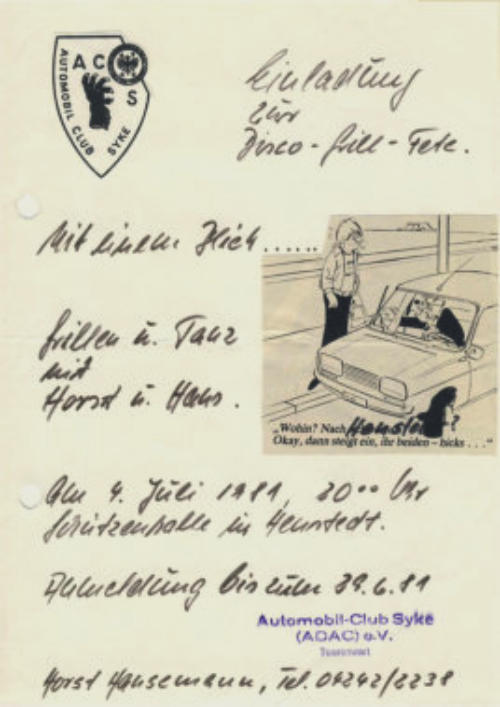 AC S
AUTOMOBIL CLUB SYKE
Einladung
zur
Disco-Grill-Fete.
Mit einem Blick.....
Grillen u. Tanz
mit
Horst u. Hans.
„Wohin? Nach Henstedt?
Okay, dann steigt ein, ihr beiden – hicks . . ."
Am 4. Juli 1981, 20°° Uhr
Schützenhalle in Henstedt.
Anmeldung bis zum 29.6.81
Automobil-Club Syke
(ADAC) e.V.
Horst Hansemann, Tel. 04242/2238